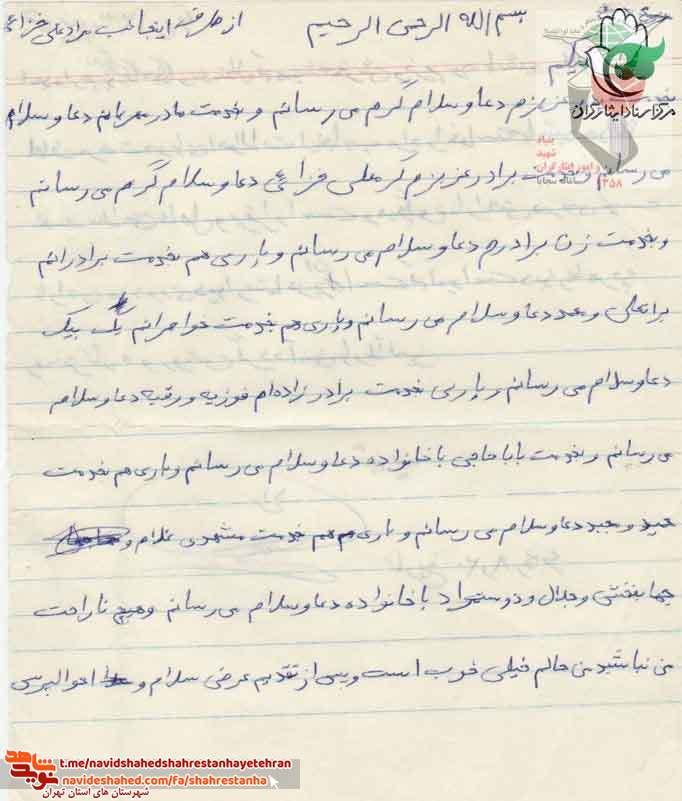 بسم الله الرحمن الرحیم
از طرف اینجانب مرادعلی خزاعی
مرکز اسناد ایثارگران
بنیاد
شهید
و امور ایثارگران
عزیزم دعا و سلام گرم می رسانم و بخدمت مادر مهربانم دعا و سلام
می رسانم و بخدمت برادر عزیزم گرمعلی خزاعی دعا و سلام گرم می رسانم
و بخدمت زن برادرم دعا و سلام می رسانم و باری هم بخدمت برادرانم
براتعلی و محمد دعا و سلام می رسانم و باری هم خدمت خواهرانم یک بیک
دعا و سلام می رسانم و باری خدمت برادرزاده ام فوزیه و رقیه دعا و سلام
می رسانم و بخدمت بابا حاجی با خانواده دعا و سلام می رسانم و باری هم بخدمت
حمید و مجید دعا و سلام می رسانم و باری هم خدمت مشهدی غلام و
جهانبخش و جلال و دوستمراد با خانواده دعا و سلام می رسانم و هیچ ناراحت
من نباشید من حالم خیلی خوب است و پس از تقدیم عرض سلام و احوالپرسی
شاهد
نوید
t.me/navidshahedshahrestanhayetehran
navideshahed.com/fa/shahrestanha
شهرستان های استان تهران